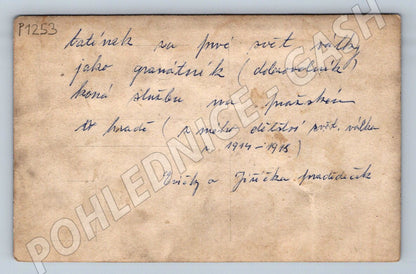 P1253
tatínek za prvé svět. války
jako granátník (dobrovolník)
koná službu na pražském
hradě (z mého dětství svět. válka
r 1914-1918)
a Jiříčka pradědeček
POHLEDNICE - CASH